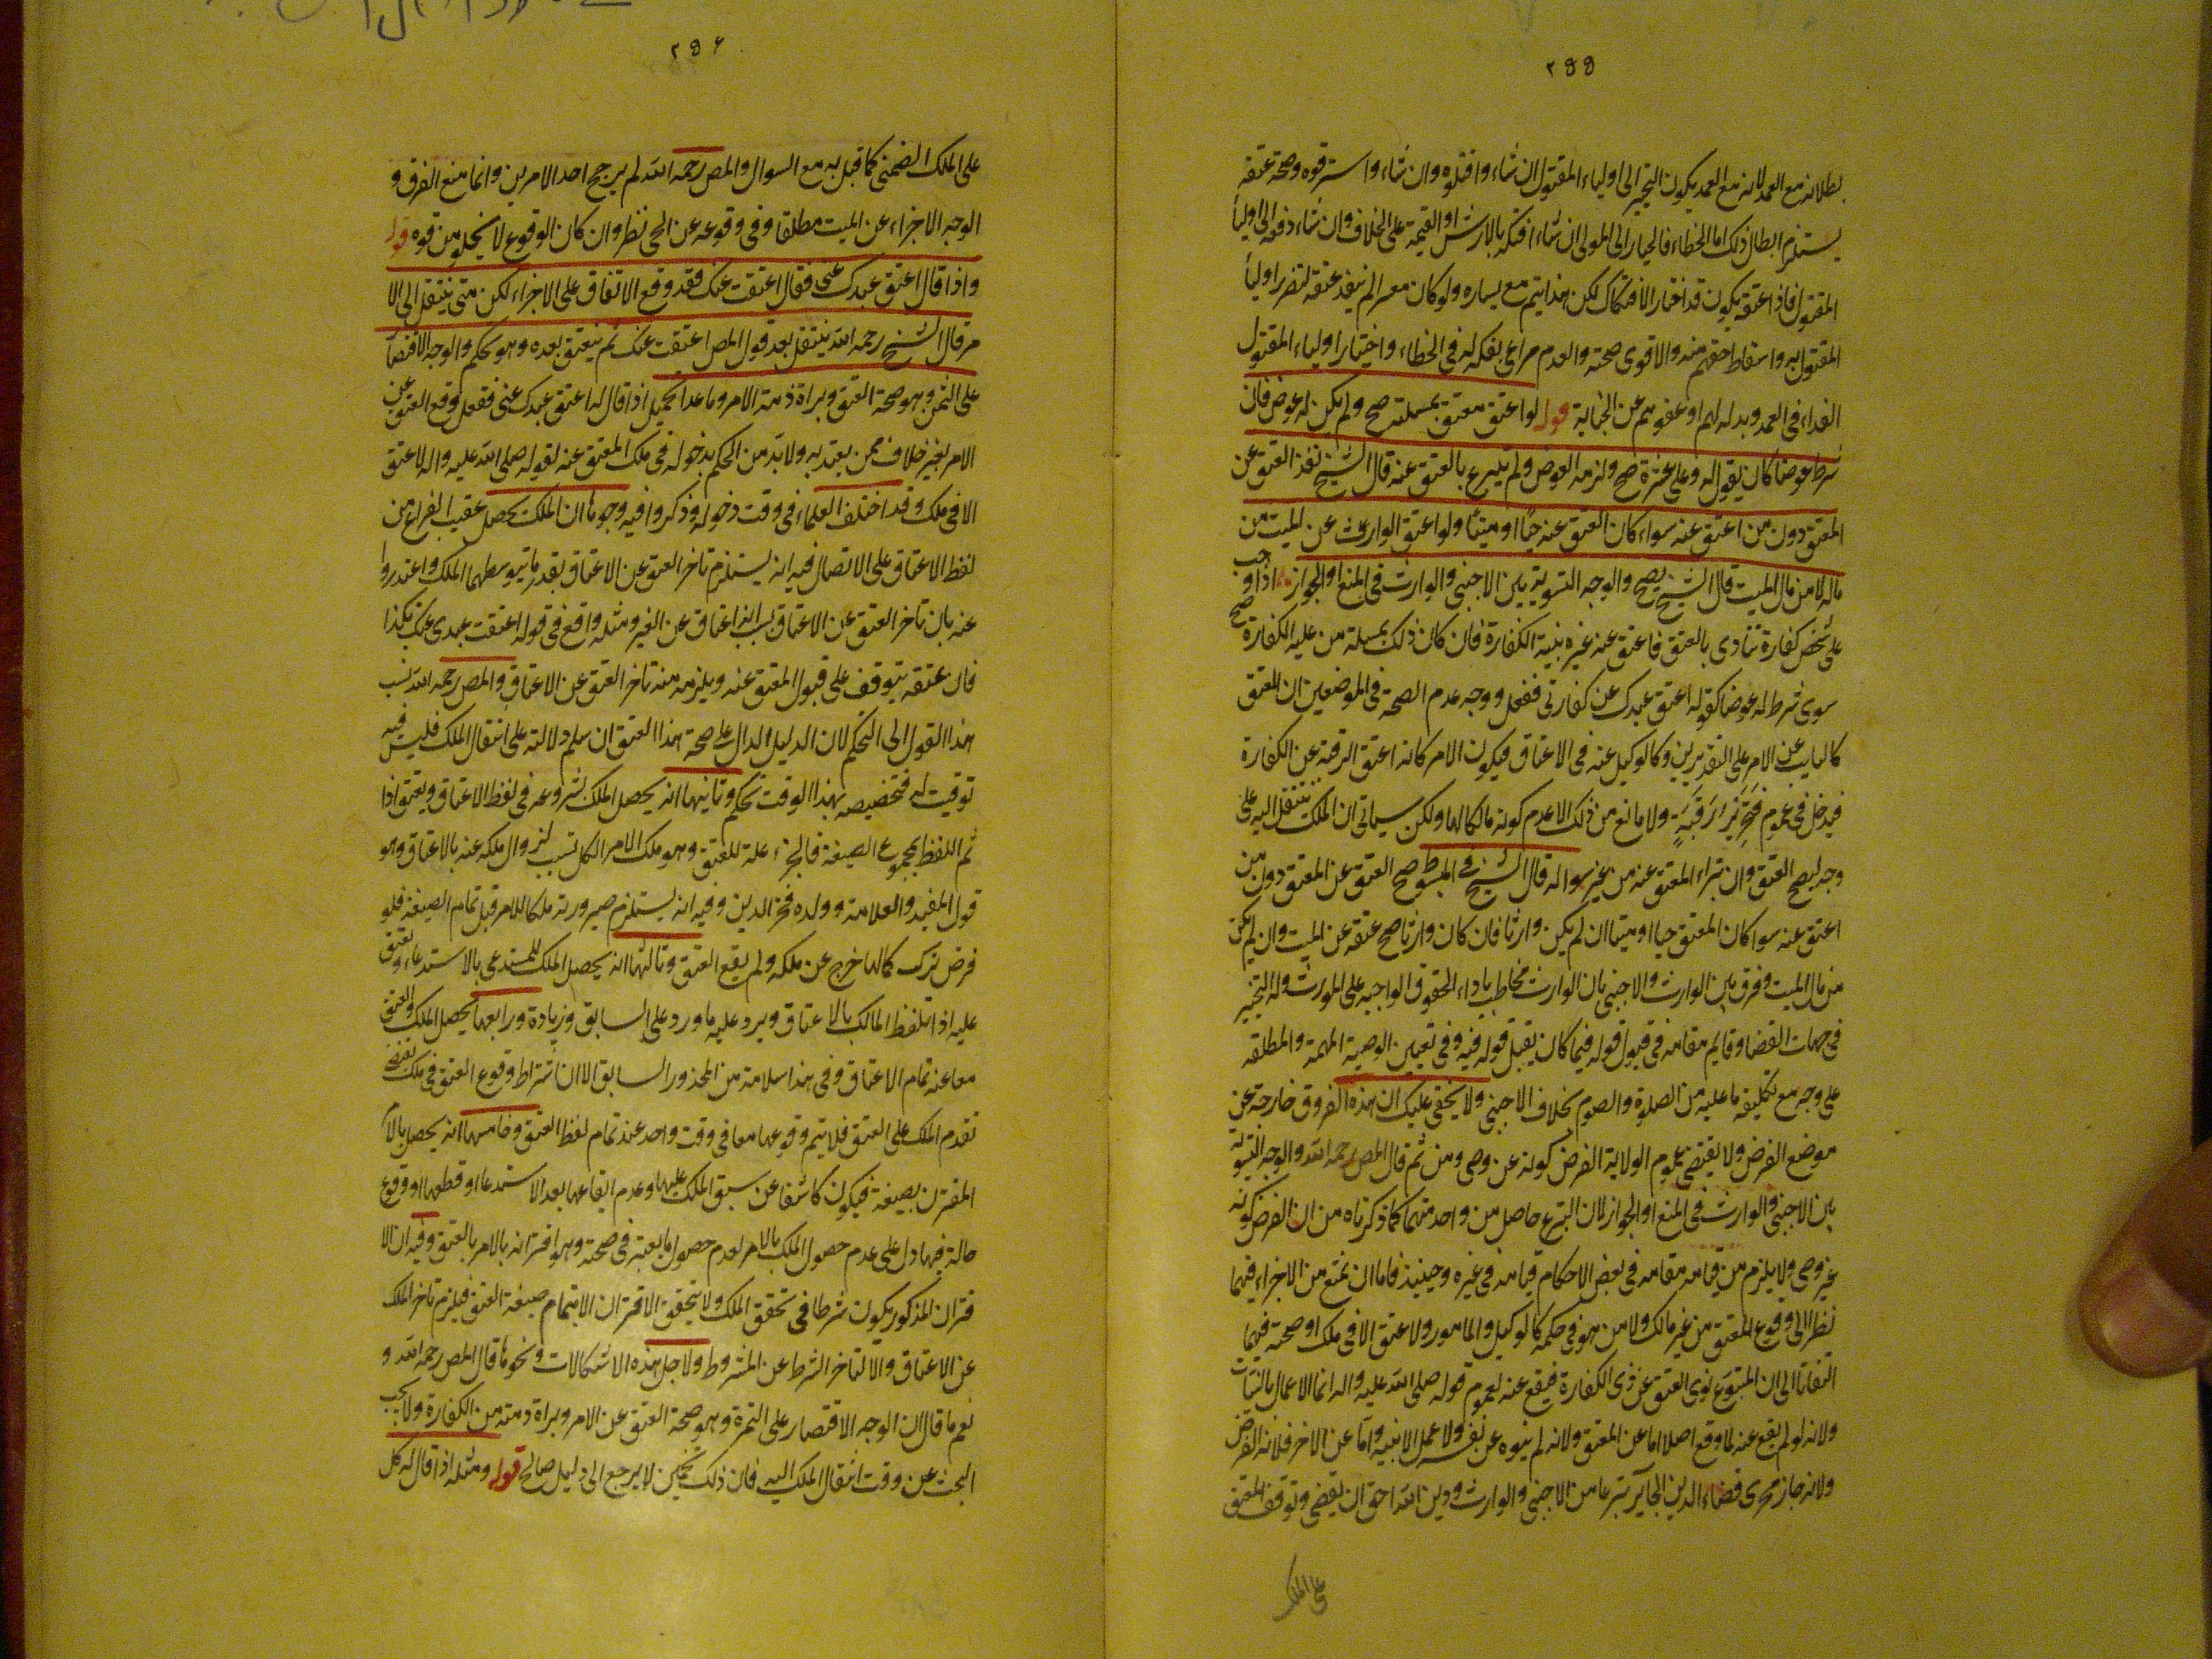 ٢٥٥
بطلانه مع العمد لانه مع العمد يكون التخيير الى اولياء المقتول ان شاء واقتلوه وان شاء واسترقوه وصحة عتقه
يستلزم ابطال ذلك اما الخطاء فالخيار الى المولى ان شاء افتكه بالارش او القيمة على الخلاف وان شاء دفعه الى اوليأ
المقتول فاذا عتقه يكون قد اختار الافتكاك لكن هذا يتم مع يساره ولو كان معسرا لم ينفذ عتقه لتضرر اوليأ
المقتول به واسقاط حقهم منه والاقوى صحته والعدم مراعى بفكه له في الخطاء واختيار اولياء المقتول
الفداء في العمد وبدله لهم او عفوهم عن الجناية قوله لو اعتق معتق بمسئلته صح ولم يكن له عوض فان
شرط عوضا كان يقول له وعلى عشرة صح ولزمه العوض ولو تبرع بالعتق عنه قال الشيخ نفذ العتق عن
المعتق دون من اعتق عنه سواء كان العتق عنه حيّا او ميتا ولو اعتق الوارث عن الميت من
ماله لا من مال الميت قال الشيخ يصح والوجه التسوية بين الاجنبي والوارث في المنع او الجواز اذا وجب
على شخص كفارة تتادى بالعتق فاعتق عنه غيره بنية الكفارة فان كان ذلك بمسئلة من عليه الكفارة صح
سوى شرط له عوضا كقوله اعتق عبدك عن كفارتى ففعل ووجه عدم الصحة في الموضعين ان المعتق
كالنايب عن الامر على التقديرين وكالوكيل عنه في الاعتاق فيكون الامر كانه اعتق الرقبة عن الكفارة
فيدخل في عموم فَتَحْرِيْرُ رَقَبَةٍ ولا مانع من ذلك الا عدم كونه مالكا لها ولكن سياتى ان الملك ينتقل اليه على
وجه ليصح العتق وان تبراء المعتق عنه من غير سواله قال الشيخ في المبسوط صح العتق عن المعتق دون من
اعتق عنه سوا كان المعتق حيا او ميتا ان لم يكن وارثا فان كان وارثا صح عتقه عن الميت وان لم يكن
من مال الميت وفرق بين الوارث والاجنبي بان الوارث مخاطب باداء الحقوق الواجبه على المورث وله التخيير
في جهات القضا وقايم مقامه في قبول قوله فيما كان يقبل قوله فيه وفي تعيين الوصية المبهمة والمطلقه
على وجه مع تكليفه ما عليه من الصلوة والصوم بخلاف الاجنبي ولا يخفى عليك ان هذه الفروق خارجة عن
موضع الفرض ولا يقتضى عموم الولاية الفرض كونه عن وصى ومن ثم قال المص رحمه الله والوجه التسوية
بين الاجنبي والوارث في المنع او الجواز لان التبرع حاصل من واحد منهما كما ذكرناه من ان الفرض كونه
غير وصى ولا يلزم من قيامه مقامه في بعض الاحكام قيامه في غيره وحينيذ فاما ان نمنع من الاجزاء فيهما
نظرا الى وقوع المعتق من غير مالك ولا من هو في حكمه كالوكيل والمامور ولا عتق الا في ملك او صحته فيهما
التفاتا الى ان المتبرع نوى العتق عن ذى الكفارة فيقع عنه لعموم قوله صلى الله عليه واله انما الاعمال بالنيات
ولانه لو لم يقع عنه لما وقع اصلا اما عن المعتق ولانه لم ينوه عن نفسه ولا عمل الا بنية واما عن الاخر فلانه الفرض
ولانه جاز مجرى قضاء الدين الجايز تبرعا من الاجنبي والوارث ودين الله احق ان يقضى وتوقف المعتق
على الملك
٢٥٦
على الملك الضمنى كما قيل به مع السوال والمص رحمه الله لم يرجح احد الامرين وانما منع الفرق و
الوجه الاجزاء عن الميت مطلقا وفي وقوعه عن الحى نظر وان كان الوقوع لا يخلو من قوه قوله
واذا قال اعتق عبدك عنى فقال اعتقت عنك فقد وقع الاتفاق على الاجزاء لكن متى ينتقل الى الا
مر قال الشيخ رحمه الله ينتقل بعد قول المص اعتقت عنك ثم ينعتق بعده وهو تحكم والوجه الاقتصار
على الثمن وهو صحة العتق وبراة ذمة الامر وما عدا تحميل اذا قال له اعتق عبدك عنى ففعل وقع العتق عن
الامر بغير خلاف ممن يعتد به ولا بد من الحكم بدخوله في ملك المعتق عنه لقوله صلى الله عليه واله لا عتق
الا في ملك وقد اختلف العلماء في وقت دخوله وذكروا فيه وجوها ان الملك يحصل عقيب الفراغ من
لفظ الاعتاق على الاتصال فيه انه يستلزم تاخر العتق عن الاعتاق بقدر ما يتوسطهما الملك واعتذروا
عنه بان تاخر العتق عن الاعتاق بسبب انه اعتاق عن الغير ومثله واقع في قوله اعتقت عبدى عنك بكذا
فان عتقه يتوقف على قبول المعتق عنه ويلزمه منه تاخر العتق عن الاعتاق والمص رحمه الله نسب
هذا القول الى التحكم لان الدليل الدال على صحة هذا العتق ان سلم دلالته على انتقال الملك فليس فيه
توقيت له فتخصيصه بهذا الوقت تحكم وثانيها انه يحصل الملك بشروعه في لفظ الاعتاق ويعتق اذا
تم اللفظ بمجموع الصيغة فالجزء علة للعتق وهو ملك الامر الكل تسبب لزوال ملكه عنه بالاعتاق وهو
قول المفيد والعلامة وولده فخر الدين وفيه انه يستلزم صيرورته ملكا للامر قبل تمام الصيغة فلو
فرض ترك كمالها خرج عن ملكه ولم يقع العتق وثالثها انه يحصل الملك للمستدعى بالاستدعاء ويعتق
عليه اذا تلفظ المالك بالاعتاق ويرد عليه ما ورد على السابق وزيادة ورابعها يحصل الملك والعتق
معا عند تمام الاعتاق وفي هذا سلامة من المحذور السابق الا ان اشتراط وقوع العتق في ملك يقتضى
تقدم الملك على العتق فلا يتم وقوعهما معا في وقت واحد عند تمام لفظ العتق وخامسها انه يحصل بالامر
المقترن بصيغة فيكون كاشفا عن سبق الملك عليها وعدم ايقاعها بعد الاستدعا او قطعها او وقوع
خالة فيها دل على عدم حصول الملك بالامر لعدم حصول ما يعتبر في صحته وهو اقترانه بالامر بالعتق وفيه ان الا
قتران المذكور يكون شرطا في تحقق الملك ولا يتحقق الاقتران الا بتمام صيغة العتق فيلزم تاخر الملك
عن الاعتاق والا لتاخر الشرط عن المشروط ولاجل هذه الاشكالات ونحوها قال المص رحمه الله و
نعم ما قال ان الوجه الاقتصار على الثمرة وهو صحة العتق عن الامر وبراة ذمته من الكفارة ولا يجب
البحث عن وقت انتقال الملك اليه فان ذلك تخمين لا يرجع الى دليل صالح قوله ومثله اذا قال له كل